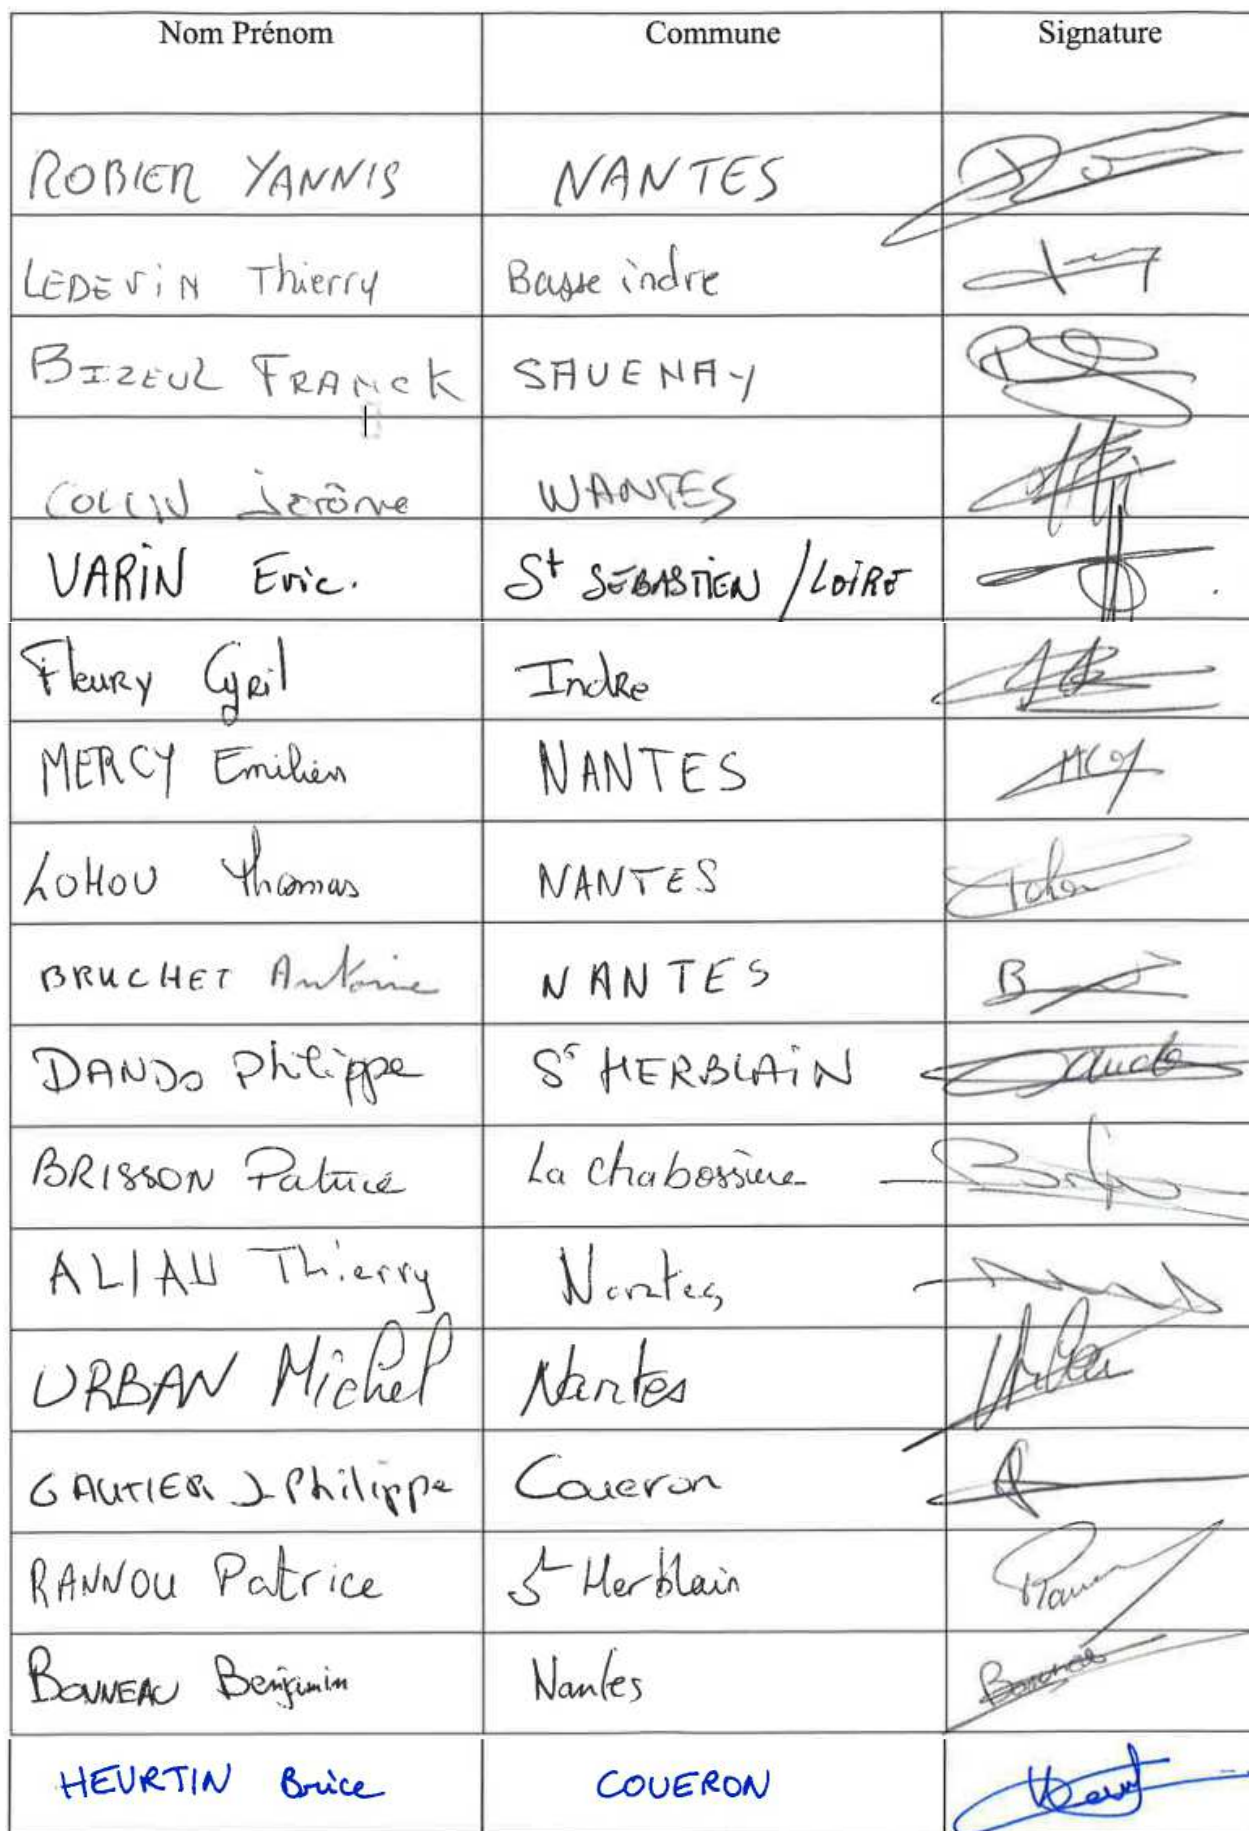 Nom Prénom Commune Signature
ROBIER YANNIS NANTES
LEDEViN Thierry Basse indre
BIZEUL FRANCK SAUENAY
COLLIN Jérôme NANTES
VARiN Eric. St SEBASTiEN / LOiRE
Fleury Cyril Indre
MERCY Emilien NANTES
LOHOU Thomas NANTES
BRUCHET Antoine NANTES
DANDO Philippe St HERBLAiN
BRISSON Patrice La chabossière
ALIAU Thierry Nantes
URBAN Michel Nantes
GAUTIER J Philippe Coueron
RANNOU Patrice St Herblain
BONNEAU Benjamin Nantes
HEURTIN Brice COUERON